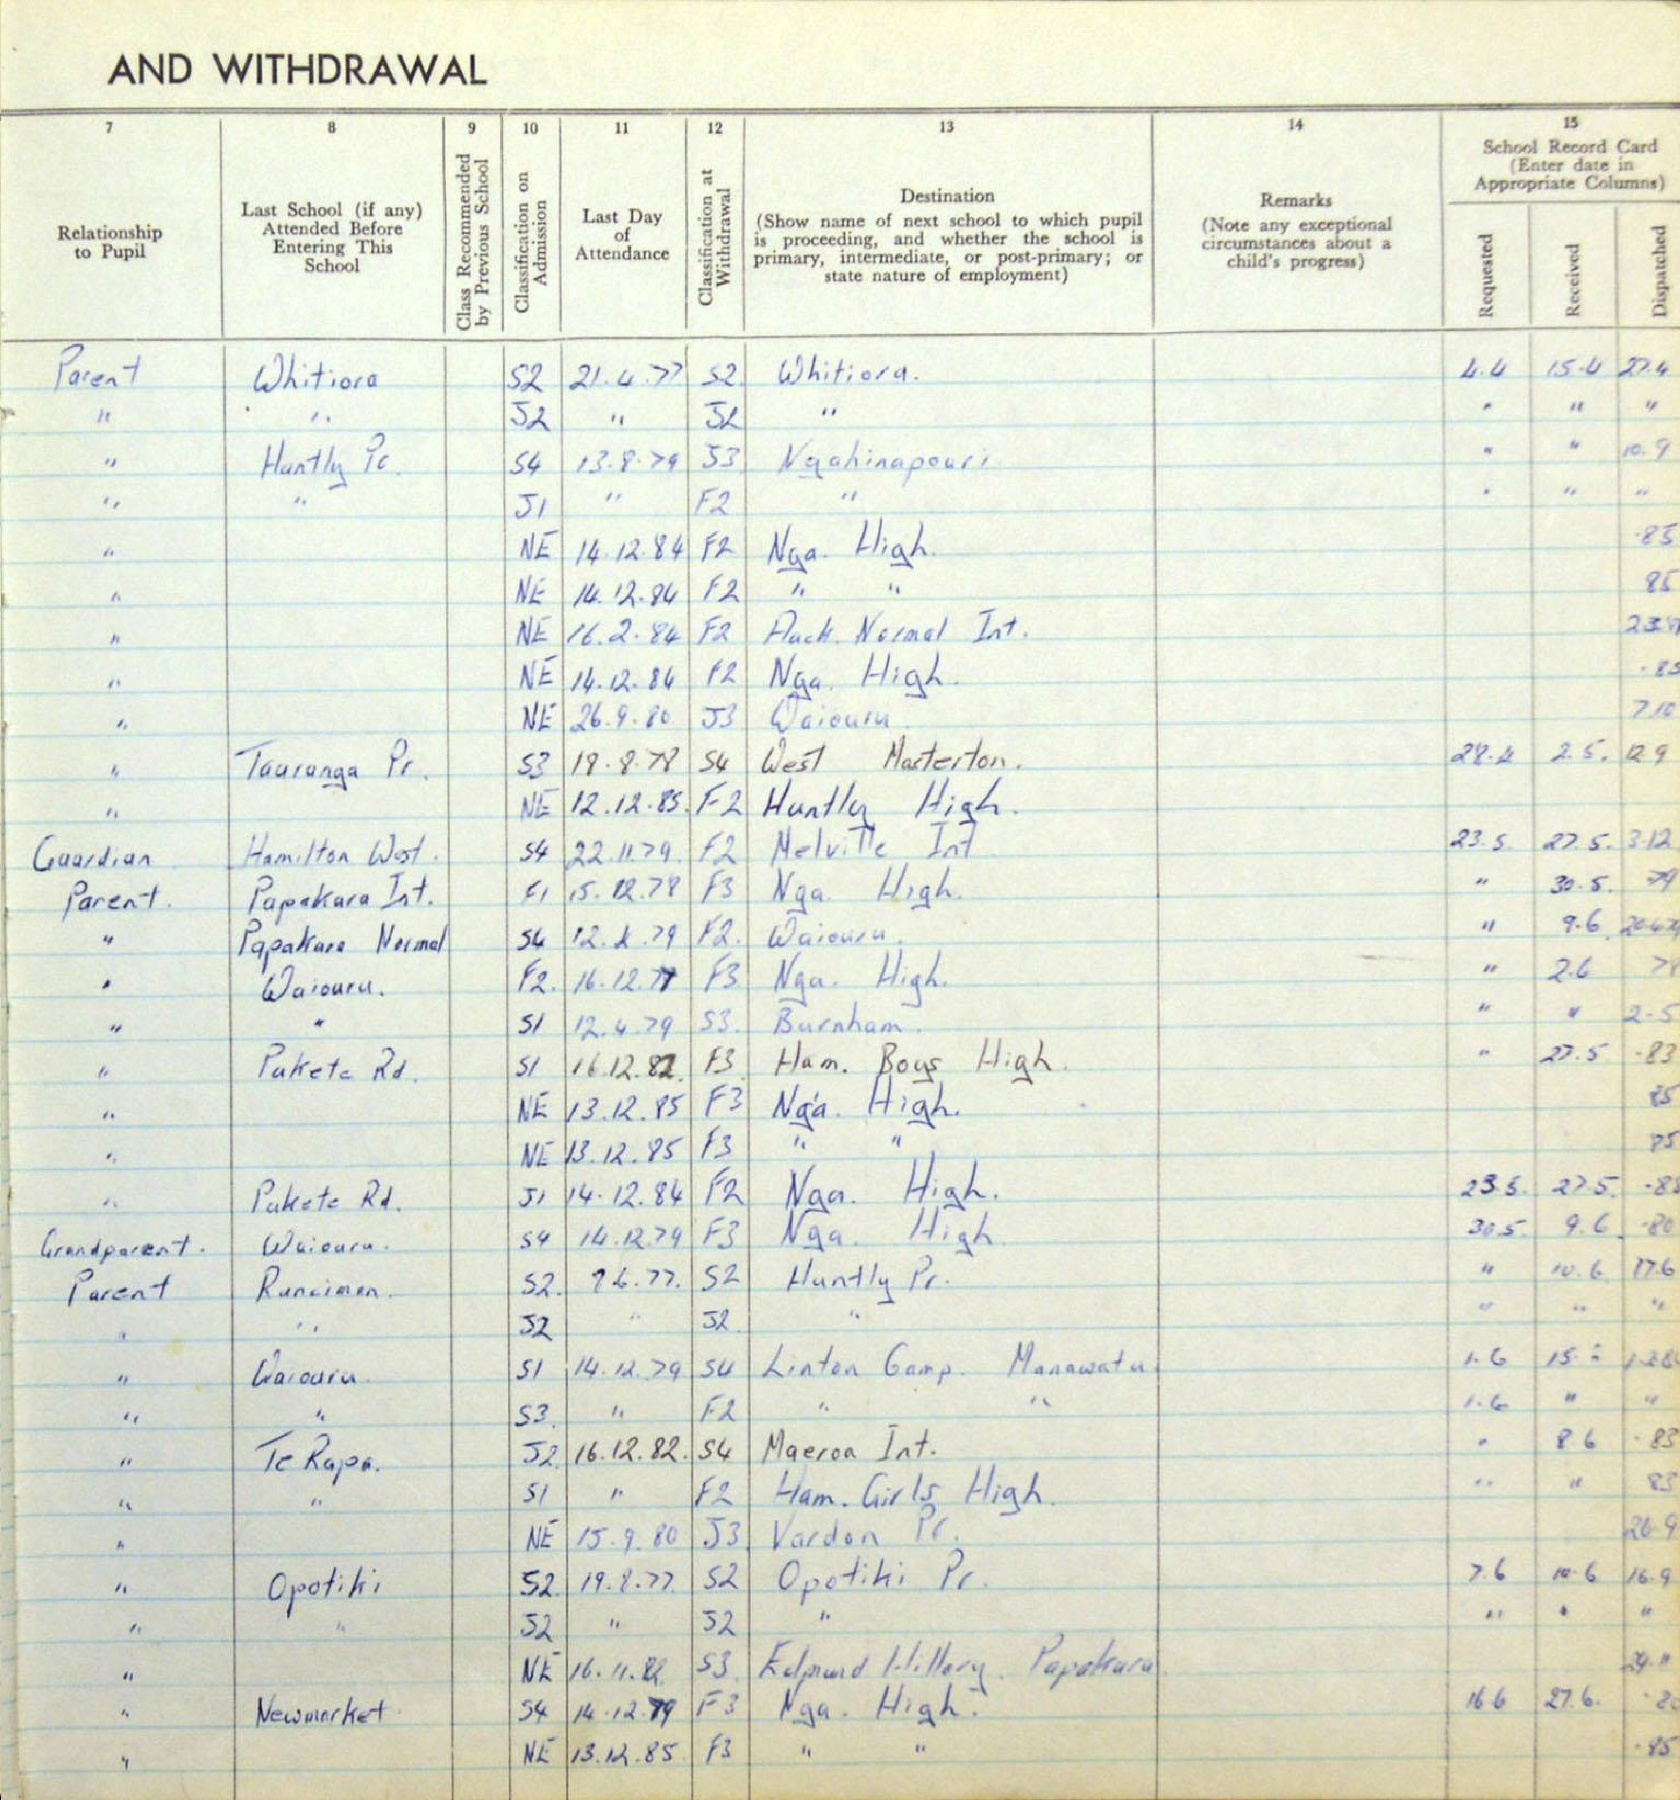 AND WITHDRAWAL
7 8 9 10 11 12 13 14 15
Relationship to Pupil
Last School (if any) Attended Before Entering This School
Class Recommended by Previous School
Classification on Admission
Last Day of Attendance
Classification at Withdrawal
Destination
(Show name of next school to which pupil is proceeding, and whether the school is primary, intermediate, or post-primary; or state nature of employment)
Remarks
(Note any exceptional circumstances about a child's progress)
School Record Card
(Enter date in Appropriate Columns)
Requested Received Dispatched
Parent Whitiora S2 21.4.77 S2 Whitiora. 4.4 15.4 27.4
" " J2 " J2 " " " "
" Huntly Pr. S4 13.8.79 J3 Ngahinapouri " " 10.9
" " J1 " F2 " " " "
" NE 14.12.84 F2 Nga. High. .85
" NE 14.12.84 F2 " " 85
" NE 16.2.84 F2 Auck. Normal Int.
" NE 14.12.84 F2 Nga. High. .85
" NE 26.9.80 J3 Waiouru. 7.10
" Tauranga Pr. S3 18.8.78 S4 West Masterton. 28.4 2.5. 12.9
" NE 12.12.85. F2 Huntly High.
Guardian Hamilton West. S4 22.11.79. F2 Melville Int 23.5. 27.5. 3.12
Parent. Papakura Int. F1 15.12.78 F3 Nga High. " 30.5. 79
" Papakura Normal S4 12. .79 F2. Waiouru. " 9.6
" Waiouru. F2. 16.12.77 F3 Nga. High. " 2.6 78
" " S1 12.4.79 S3. Burnham. " " 2-5
" Pukete Rd. S1 16.12.82. F3 Ham. Boys High. " 27.5 .83
" NE 13.12.85 F3 Nga. High. 85
" NE 13.12.85 F3 " " 85
" Pukete Rd. J1 14.12.84 F2 Nga. High. 23.5. 27.5.
Grandparent. Waiouru. S4 14.12.79 F3 Nga. High 30.5. 9.6 .80
Parent Runciman. S2. 7.6.77. S2 Huntly Pr. " 10.6 17.6
" " J2 " J2. " " " "
" Waiouru. S1 14.12.79 S4 Linton Camp. Manawatu. 1.6
" " S3. " F2 " " 1.6 " "
" Te Rapa. J2 16.12.82. S4 Maeroa Int. " 8.6 .83
" " S1 " F2 Ham. Girls High. " " 83
" NE 15.9.80 J3 Vardon Pr. 26.9
" Opotiki S2. 19.8.77. S2 Opotiki Pr. 7.6 10.6 16.9
" " J2 " J2 " " " "
" NE 16.11.82. S3. Edmund Hillary. Papakura 29.11
" Newmarket S4 14.12.79 F3 Nga. High. 16.6 27.6.
" NE 13.12.85. F3 " " .85